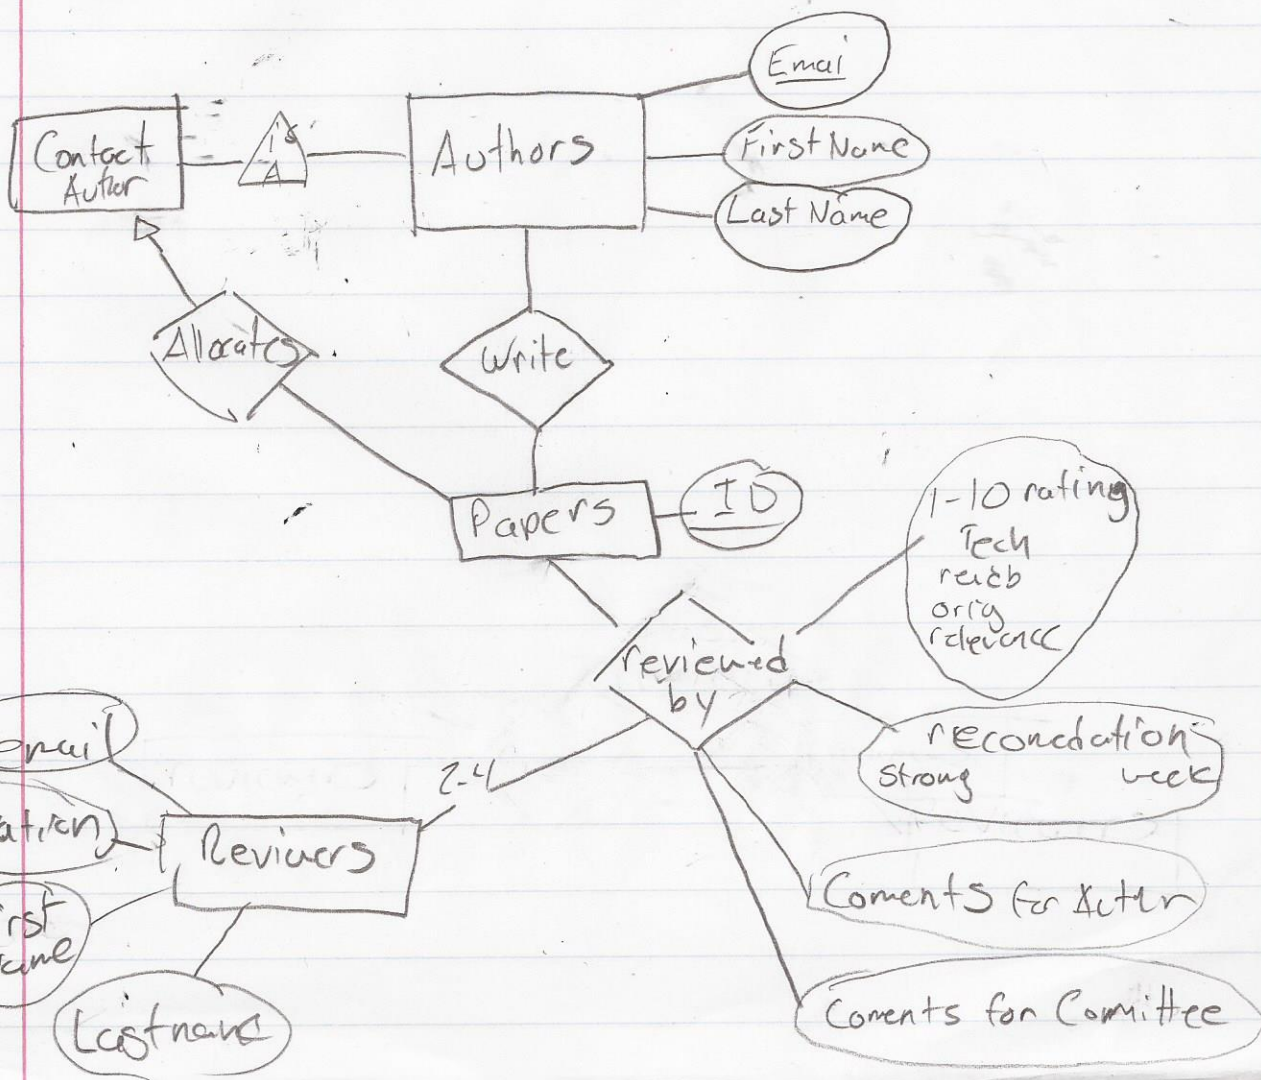 Emai
Contact
Author
is
A
Authors
First Name
Last Name
Allocates
Write
Papers
ID
1-10 rating
Tech
readb
orig
relevance
reviewed
by
recondation
Strong week
email
2-4
Reviuers
Coments for Autur
irst
name
Lastname
Coments for Committee